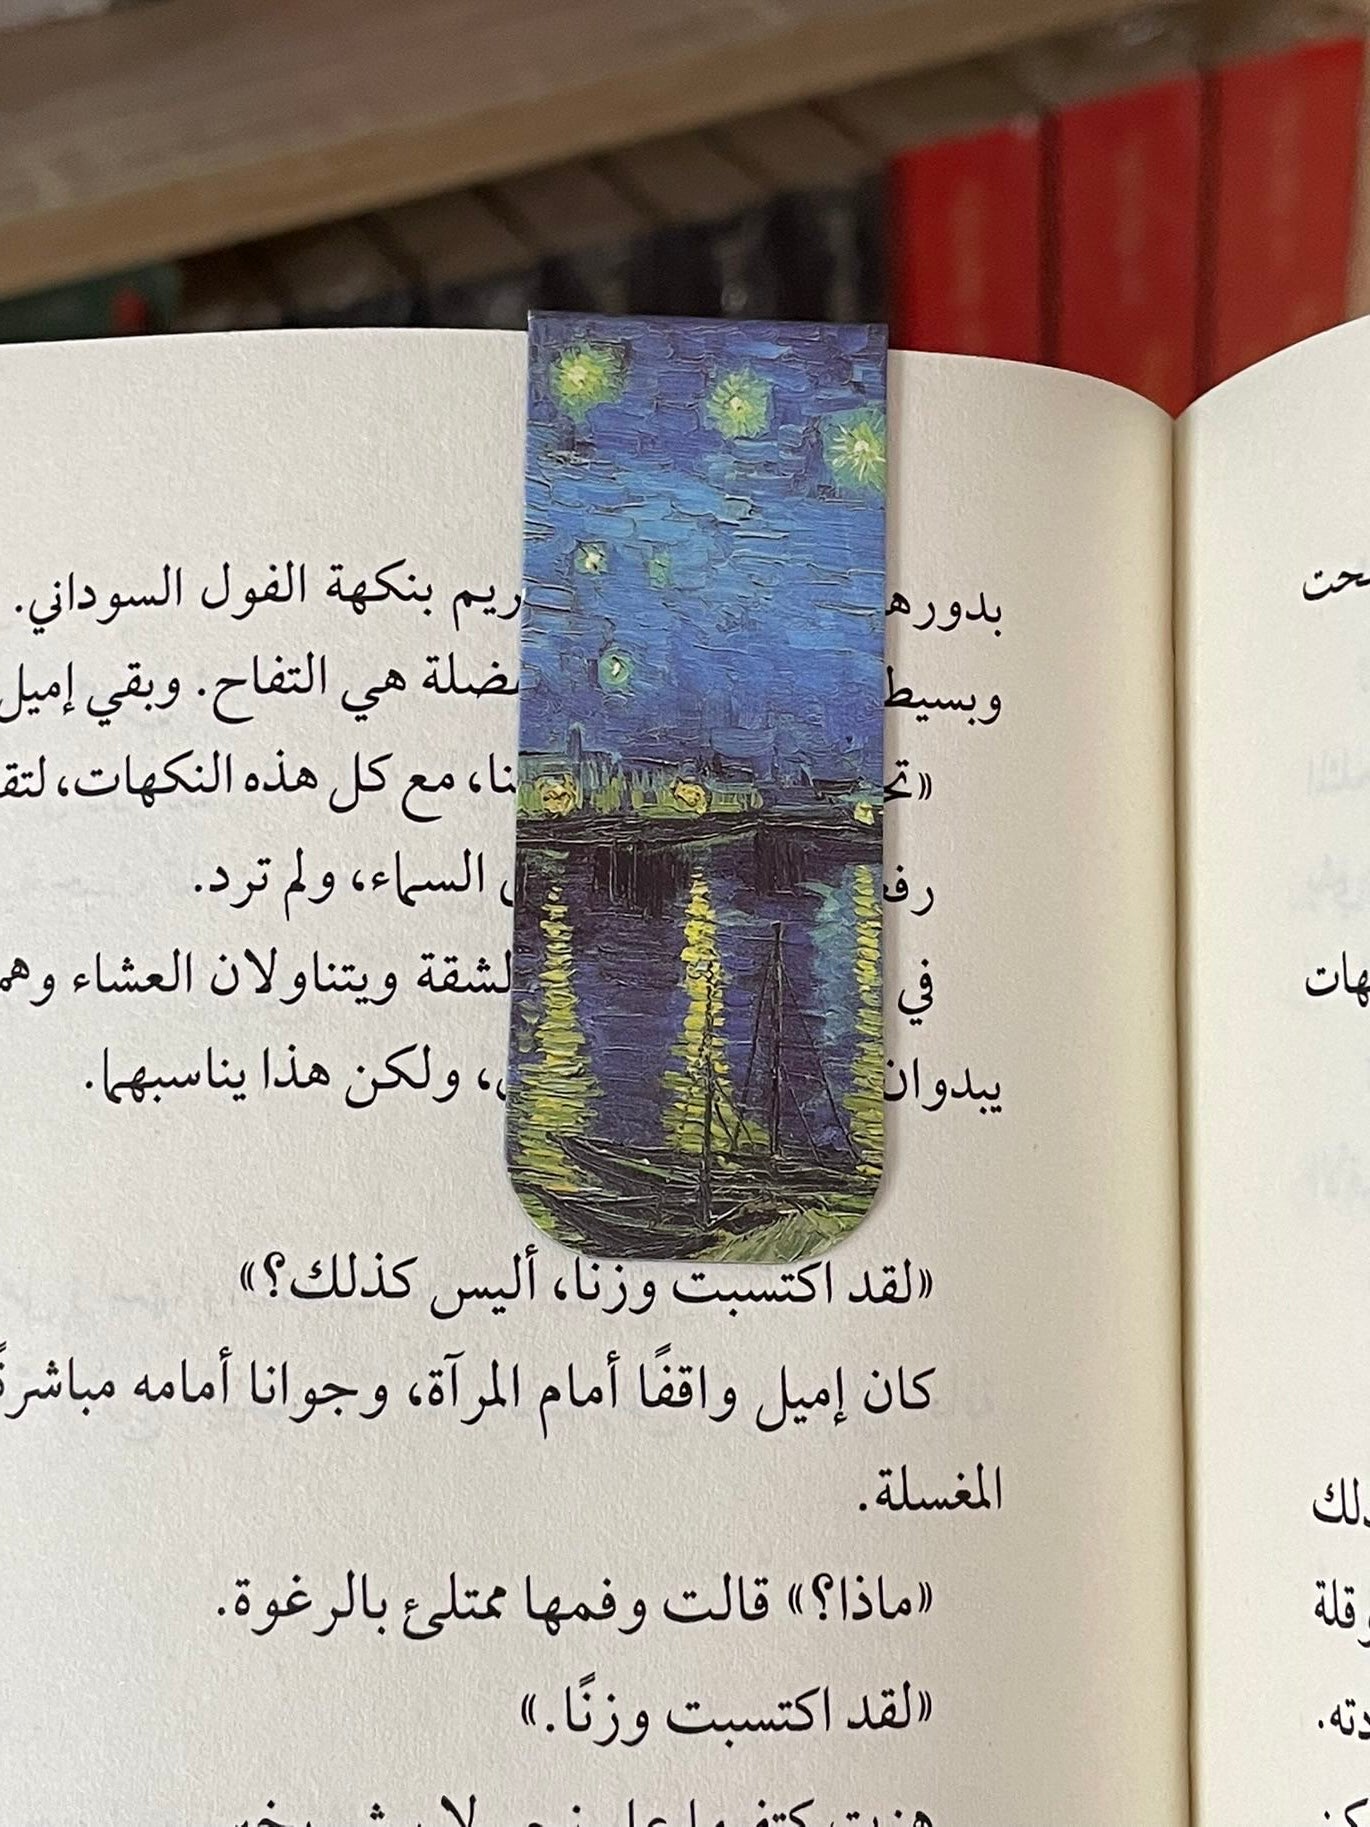 بدورها ريم بنكهة الفول السوداني.
هي التفاح. وبقي إميل
مع كل هذه النكهات، لتقـ
السماء، ولم ترد.
في ويتناولان العشاء وهمـ
يبدوان ولكن هذا يناسبهما.
«لقد اكتسبت وزنًا، أليس كذلك؟»
كان إميل واقفًا أمام المرآة، وجوانا أمامه مباشرةً
المغسلة.
«ماذا؟» قالت وفمها ممتلئ بالرغوة.
«لقد اكتسبت وزنًا.»
وقلة